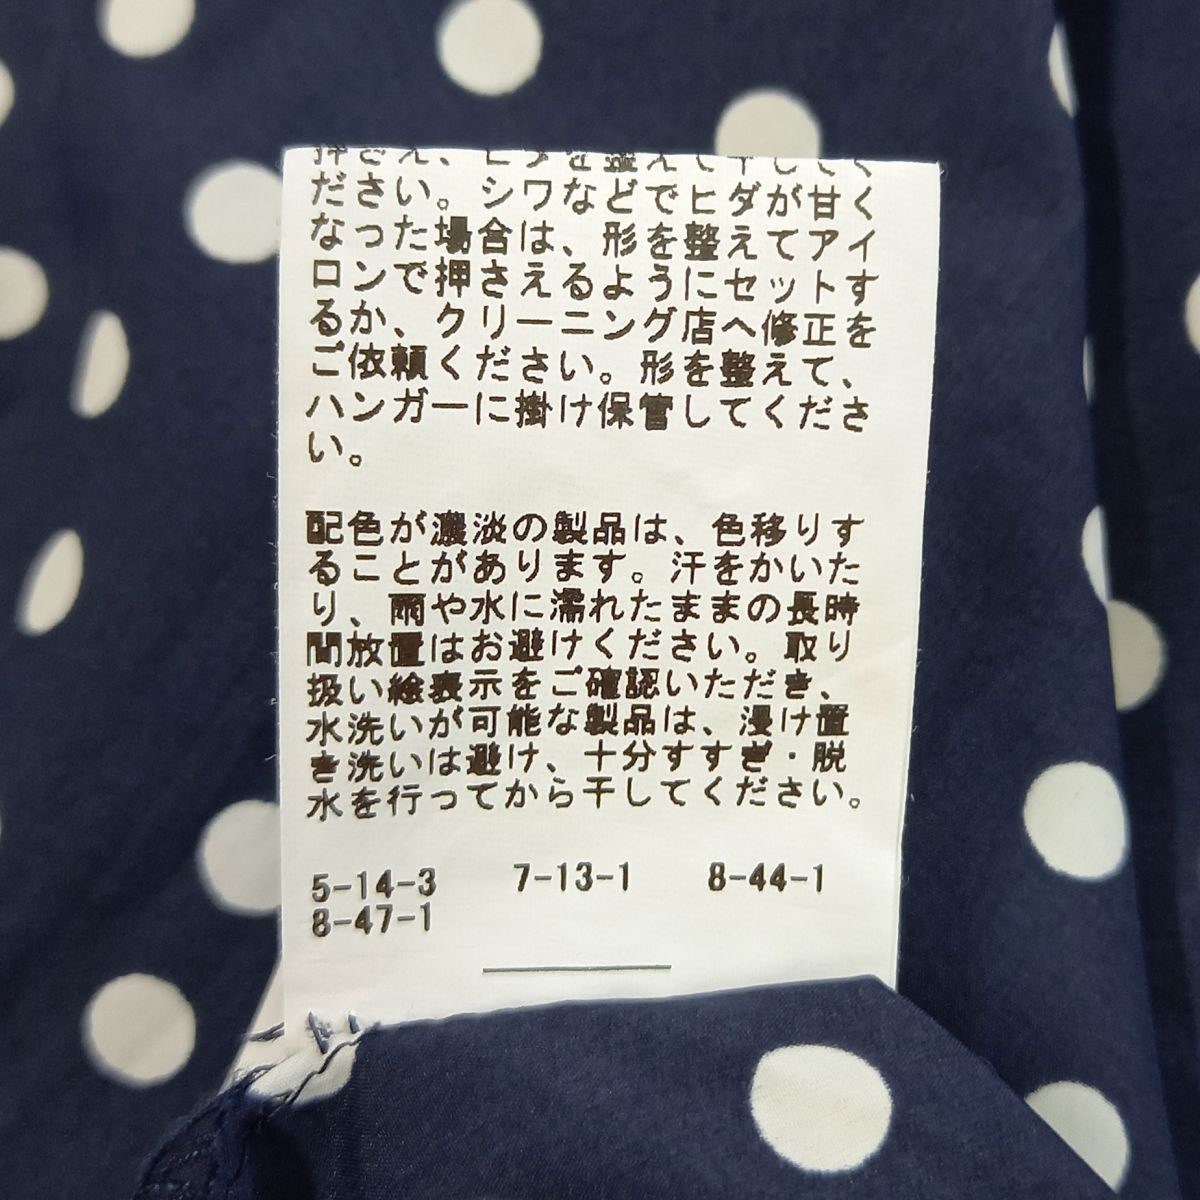 押さえ、ヒダを整えて干してく
ださい。シワなどでヒダが甘く
なった場合は、形を整えてアイ
ロンで押さえるようにセットす
るか、クリーニング店へ修正を
ご依頼ください。形を整えて、
ハンガーに掛け保管してくださ
い。
配色が濃淡の製品は、色移りす
ることがあります。汗をかいた
り、雨や水に濡れたままの長時
間放置はお避けください。取り
扱い絵表示をご確認いただき、
水洗いが可能な製品は、浸け置
き洗いは避け、十分すすぎ・脱
水を行ってから干してください。
5-14-3 7-13-1 8-44-1
8-47-1